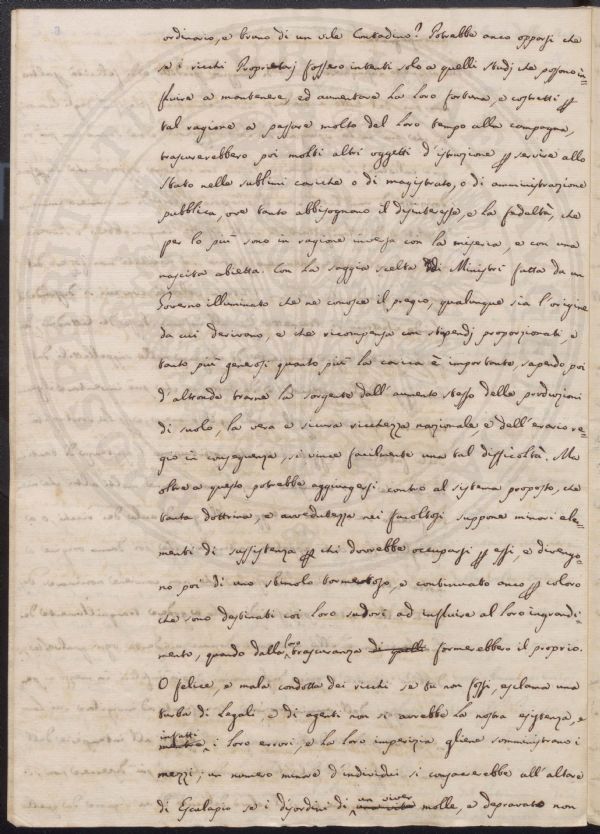 ordinario, e bravo di un vile Contadino? Potrebbe anco opporsi che
se i ricchi Proprietarj fossero intenti solo a quelli studj che possono in=
fluire a mantenere, ed aumentare la loro fortuna, e costretti p
tal ragione a passare molto del loro tempo alla campagna,
trascurerebbero poi molti altri oggetti d'istruzione p servire allo
stato nelle sublimi cariche o di magistrato, o di amministrazione
pubblica, ove tanto abbisognano il disinteresse, e la fedeltà, che
per lo più sono in ragione inversa con la miseria, e con una
nascita abietta. Con la saggia scelta di Ministri fatta da un
Governo illuminato che ne conosce il pregio, qualunque sia l'origine
da cui derivano, e che ricompensa con stipendj proporzionati, e
tanto più generosi quanto più la carica è importante, sapendo poi
d'altronde trarne la sorgente dall'aumento stesso delle produzioni
di suolo, la vera e sicura ricchezza nazionale e dell'erario re=
gio in conseguenza, si vince facilmente una tal difficoltà. Ma
oltre a questo potrebbe aggiungersi contro al sistema proposto, che
tanta dottrina, e avvedutezza nei facoltosi suppone minori ele=
menti di sussistenza p chi dovrebbe occuparsi p essi, e divengo=
no poi di uno stimolo tormentoso, e continuato anco p coloro
che sono destinati coi loro sudori ad influire al loro ingrandi=
mento, quando dalla loro trascuranza di quelli formerebbero il proprio.
O felice, e mala condotta dei ricchi se tu non fossi, esclama una
turba di Legali, e di agenti non si avrebbe la nostra esistenza, e
infatti i loro errori, e la loro imperizia, gliene somministrano i
mezzi; un numero minore d'individui si consacrerebbe all'altare
di Esculapio se i disordini di un viver molle, e depravato non